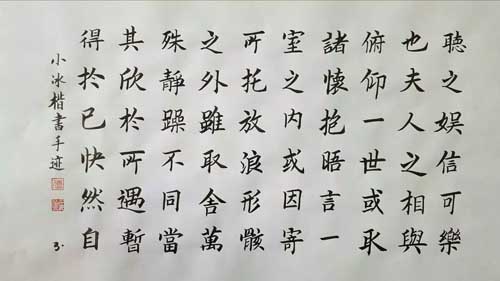 聽之娛信可樂
也夫人之相與
俯仰一世或取
諸懷抱晤言一
室之内或因寄
所托放浪形骸
之外雖取舍萬
殊靜躁不同當
其欣於所遇暫
得於己快然自
小冰楷書手迹
3.